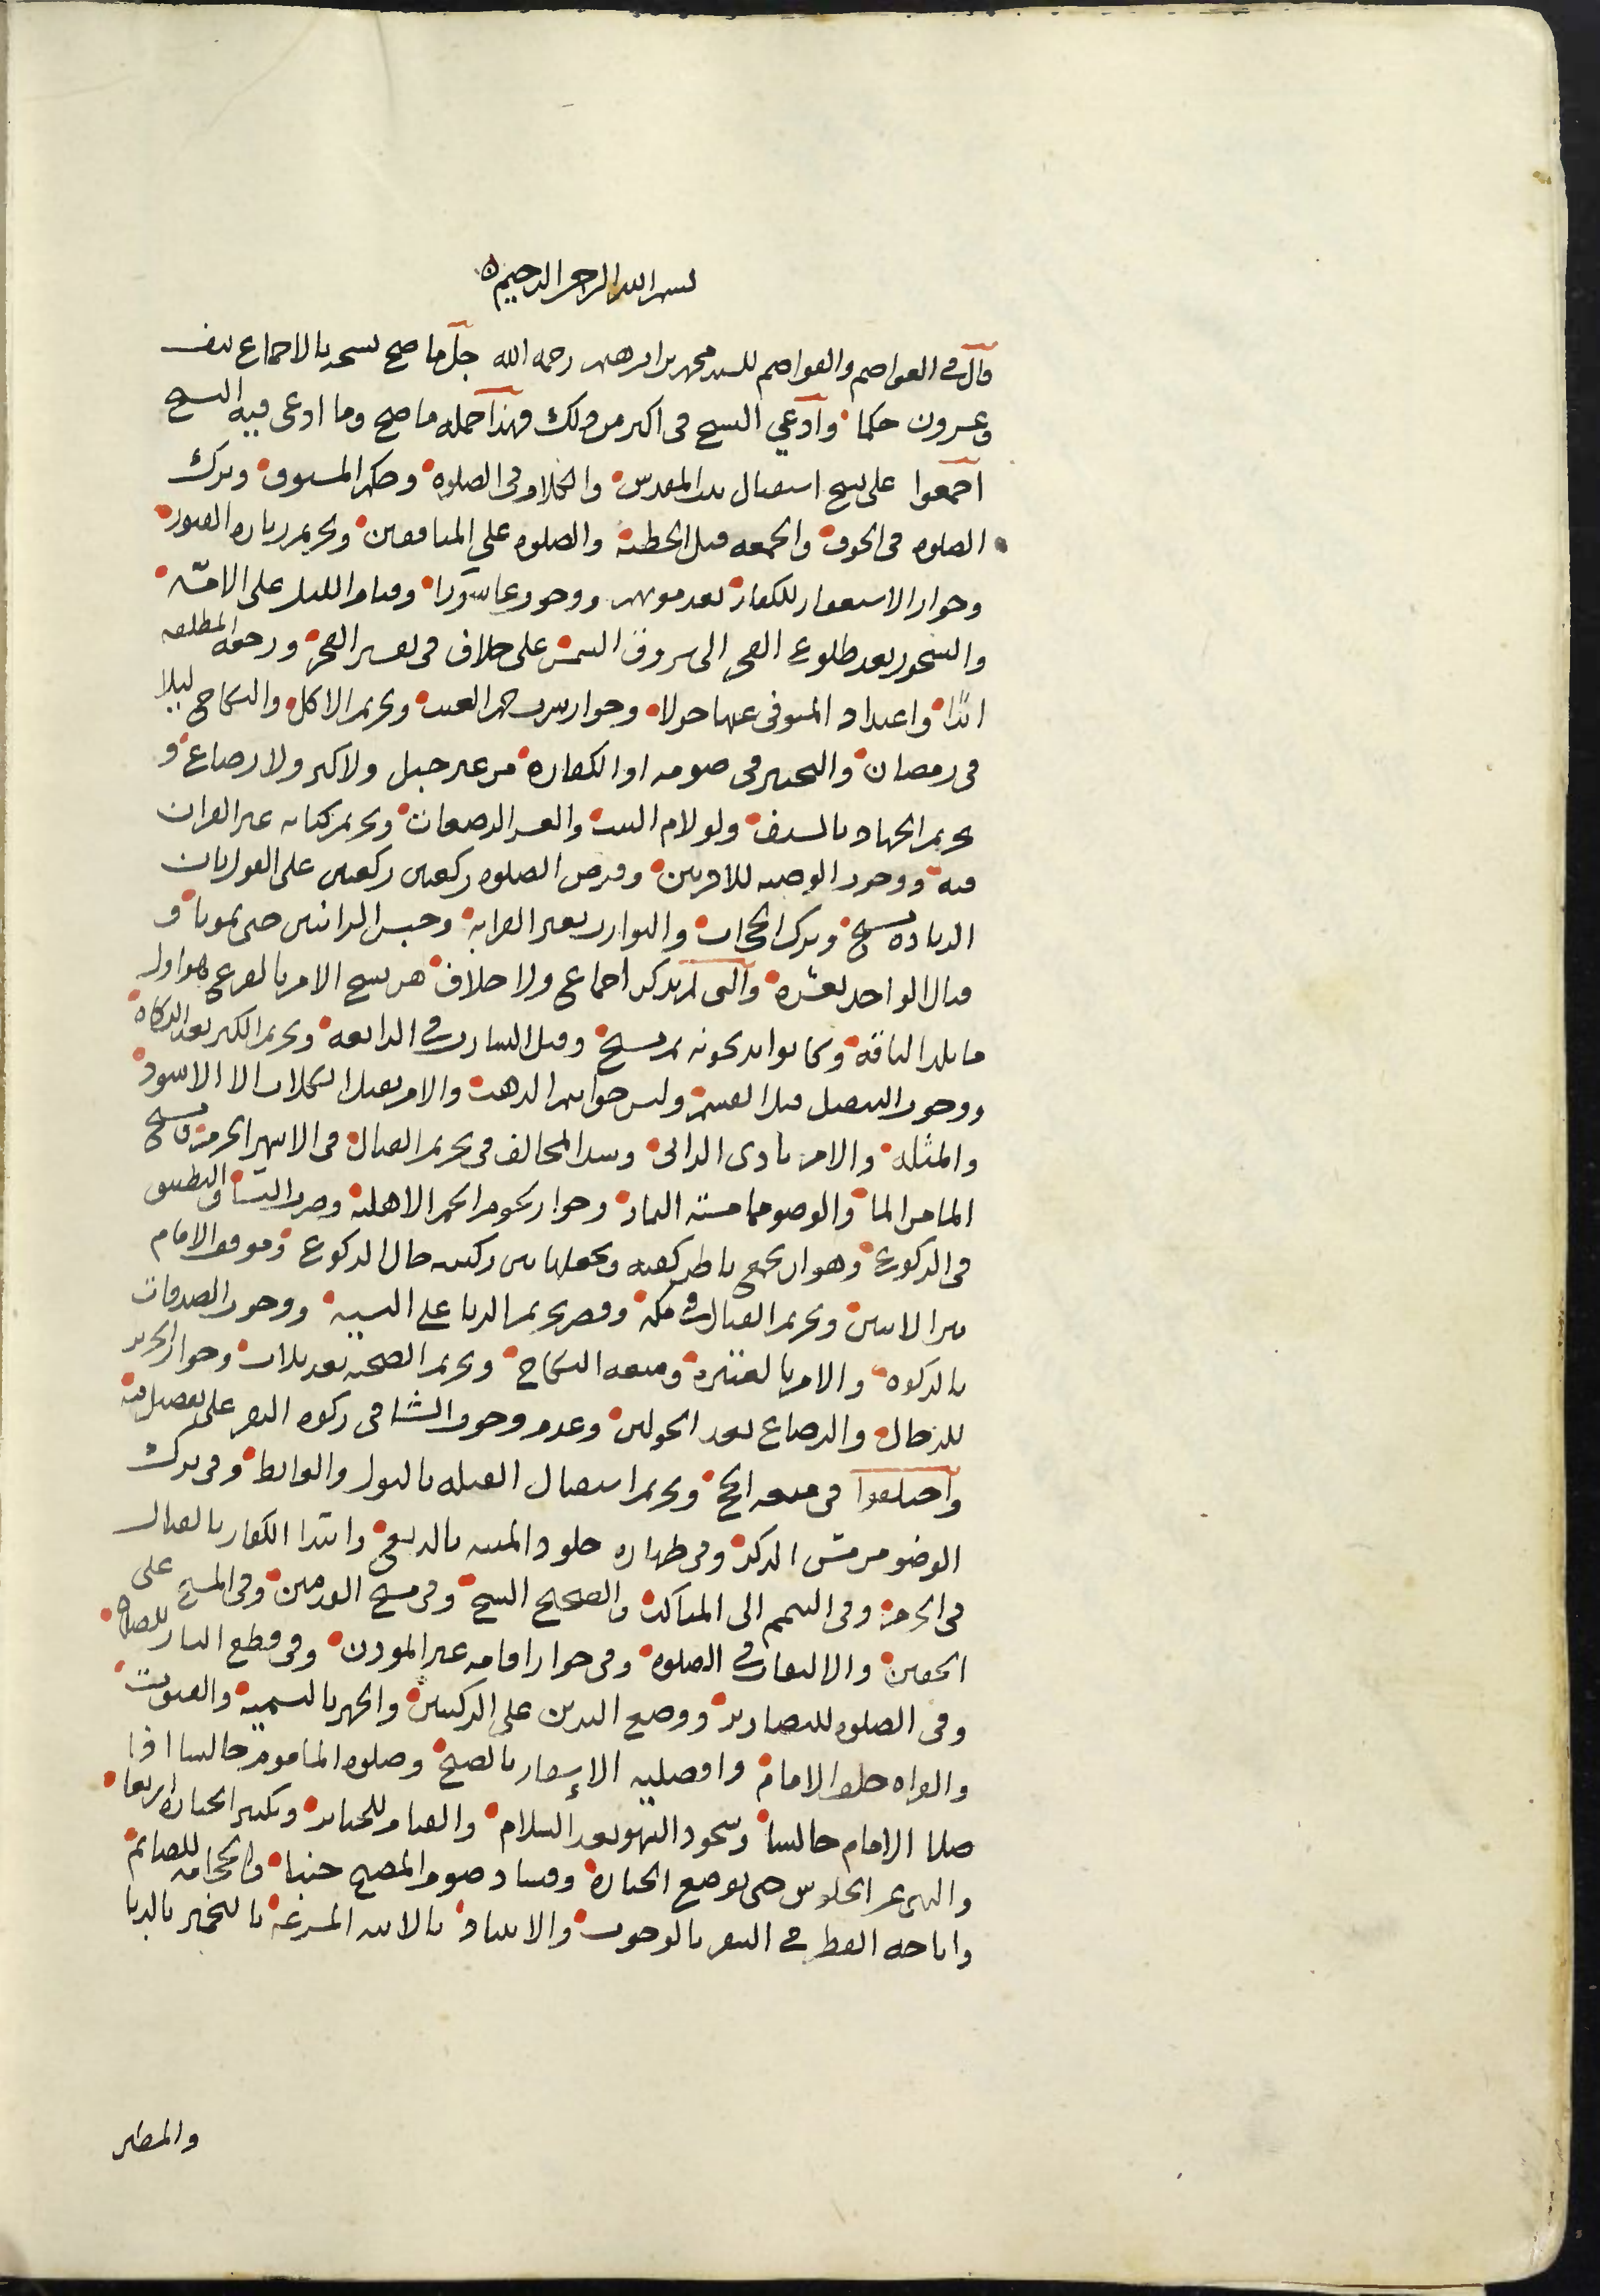 بسم الله الرحمن الرحيم ه
قال في العواصم والقواصم للسيد محمد بن ابرهيم رحمه الله جل ما صح نسخه بالاجماع نيف
وعشرون حكما وادعي النسخ في اكثر من ذلك فهذا جمله ما صح وما ادعى فيه النسخ
اجمعوا على نسخ استقبال بيت المقدس والكلام في الصلوه وحكم المسبوق وترك
الصلوه في الخوف والجمعه قبل الخطبة والصلوه على المنافقين وتحريم زياره القبور
وجواز الاستغفار للكفار بعد موتهم ووجوب عاشورا وقيام الليل على الامّه
والسحور بعد طلوع الفجر الى شروق الشمس على خلاف في تفسير الفجر ورجعه المطلقه
ابدًا واعتداد المتوفى عنها حولا وجواز شرب خمر العنب وتحريم الاكل والنكاح ليلا
في رمضان والتخيير في صومه او الكفاره من غير حبل ولا كبر ولا رضاع و
تحريم الجهاد بالسيف ولو لام البيت والعشر الرضعات وتحريم كتابه غير القران
فيه ووجوب الوصيه للاقربين وفرض الصلوه ركعتين ركعتين على القول بان
الزياده نسخ وترك الحجاب والتوارث بغير القرابة وحبس الزانيين حتى يموتا و
قتال الواحد لعشره والتي لم يذكر اجماع ولا خلاف هي نسخ الامر بالفرع وهو اول
ما تلد الناقه وكانوا يذبحونه ثم نسخ وقتل السارق في الرابعه وتحريم الكنز بعد الزكاه
ووجوب التنفيل قبل القسمة ولبس خواتم الذهب والامر بقتل الكلاب الا الاسود
والمثله والامر باذى الزاني وسد المحالف في تحريم القتال في الاشهر الحرم ونسخ
الما من الما والوضو مما مسته النار وجواز لحوم الحمر الاهلية وضرب النسا والتطبيق
في الركوع وهو ان يجمع باطن كفيه ويجعلها بين ركبتيه حال الركوع وموقف الامام
بين الاثنين وتحريم القتال في مكه وقصر تحريم الربا على النسيه ووجوب الصدقات
بالزكوه والامر بالعتيره ومتعه النكاح وتحريم الضحيه بعد ثلاث وجواز الحرير
للرجال والرضاع بعد الحولين وعدم وجوب الشا في زكوه البقر على تفصيل فيه
واختلفوا في متعه الحج وتحريم استقبال القبله بالبول والغايط وفي ترك
الوضو من مس الذكر وفي طهاره جلود الميته بالدبغ وابتدا الكفار بالقتال
في الحرم وفي التيمم الى المناكب والصحيح النسخ وفي مسح القدمين وفي المسح على
الخفين والالتفات في الصلوه وفي جواز اقامه غير المودن وفي قطع المار للصلاه
وفي الصلوه للتصاوير ووضع اليدين على الركبتين والجهر بالتسمية والقنوت
والقراه خلف الامام وافضليه الاسفار بالصبح وصلوه الماموم جالسا اذا
صلا الامام جالسا وسجود السهو بعد السلام والقيام للجنايز وتكبير الجنازه اربعا
والنهي عن الجلوس حتى توضع الجنازه وفساد صوم المصبح جنبا والحجامه للصائم
واباحه الفطر في السفر بالوجوب والانباذ بالانيه المسرعة بالتخمير بالدبا
والمطر